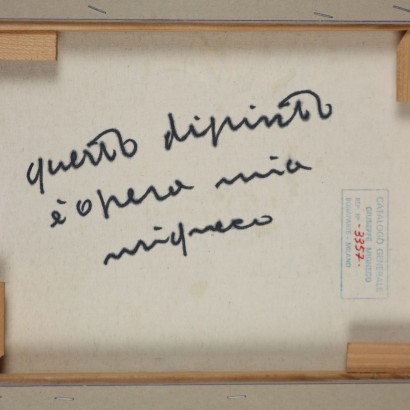 questo dipinto
è opera mia
migneco
CATALOGO GENERALE
GIUSEPPE MIGNECO
3357